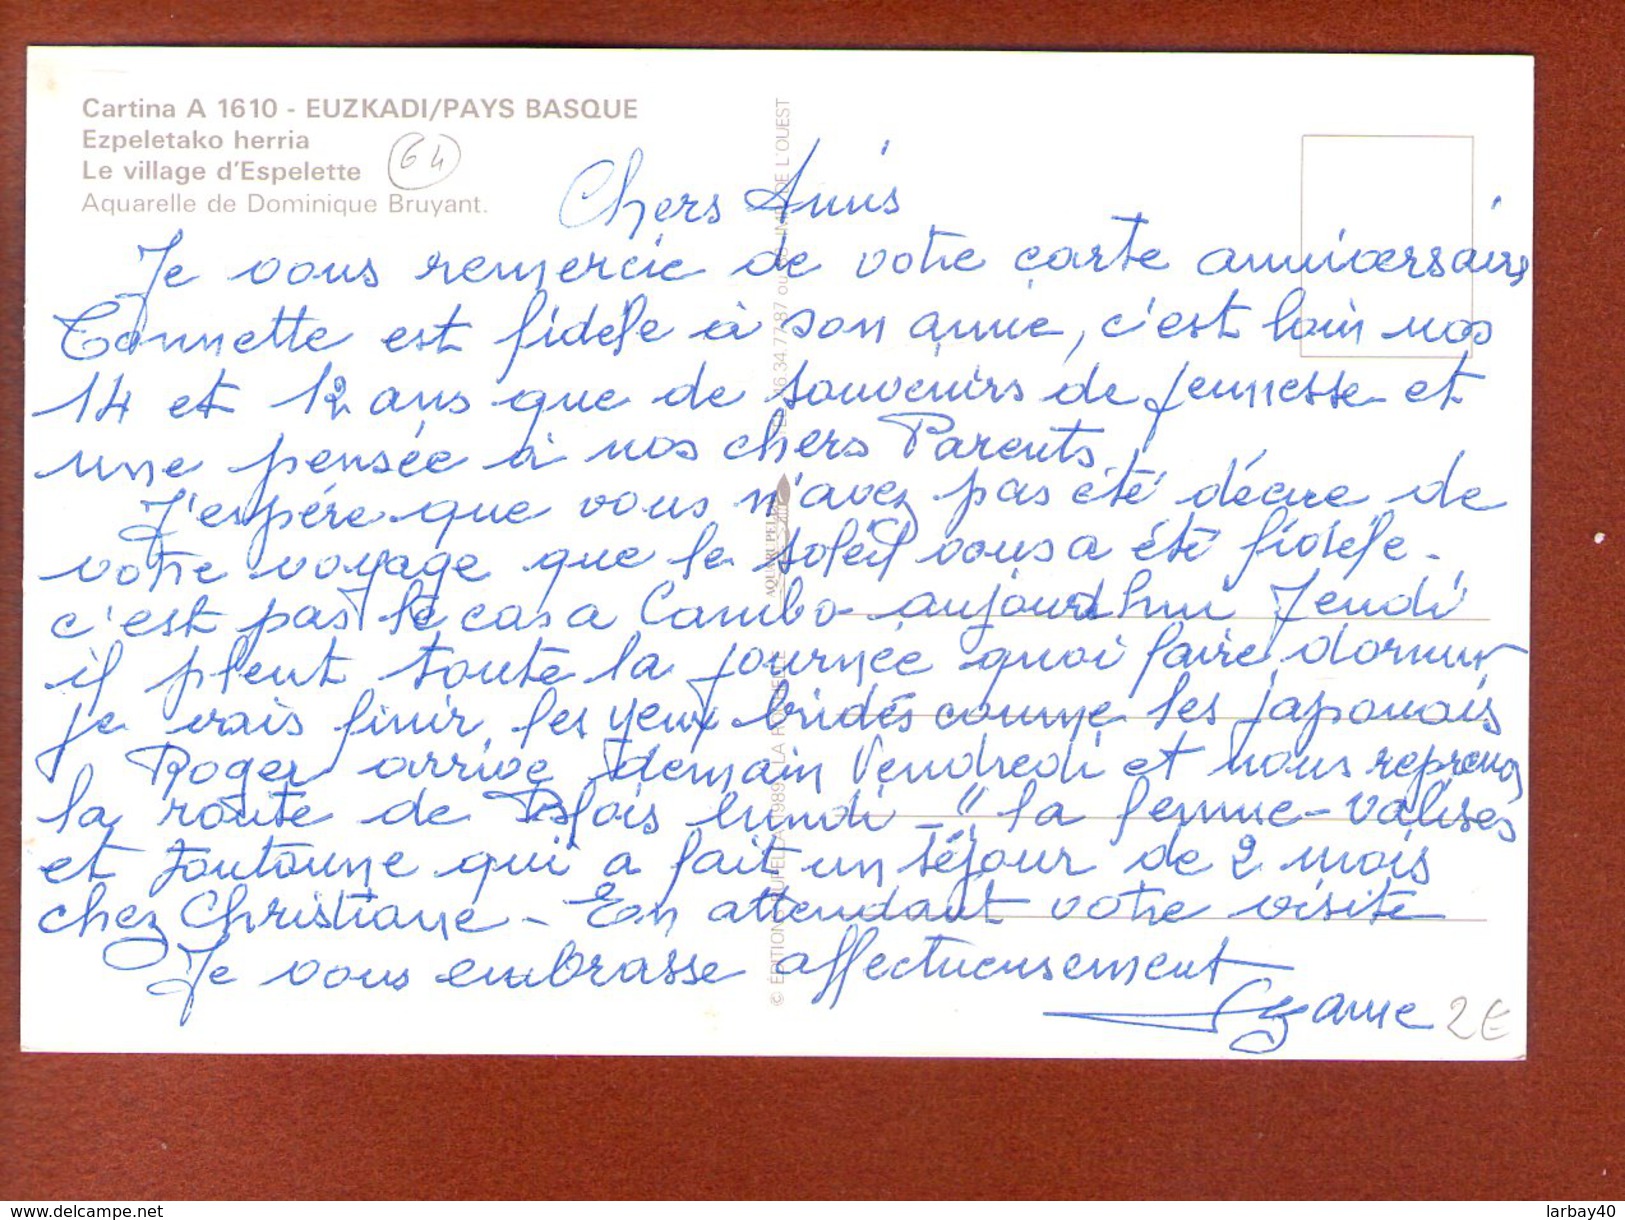 Cartina A 1610 - EUZKADI/PAYS BASQUE
Ezpeletako herria
Le village d'Espelette
Aquarelle de Dominique Bruyant.
64
Chers Amis
Je vous remercie de votre carte anniversaire
Tonnette est fidèle à son amie, c'est loin nos
14 et 12 ans que de souvenirs de jeunesse et
une pensée à nos chers Parents.
J'espère que vous n'avez pas été déçue de
votre voyage que le soleil vous a été fidèle.
c'est pas le cas a Cambo aujourd'hui Jeudi
il pleut toute la journée quoi faire, dormir
je vais finir les yeux bridés comme les japonais
Roger arrive demain Vendredi et nous reprenons
la route de Blois lundi - " la femme-valises
et qui a fait un séjour de 2 mois
chez Christiane - En attendant votre visite
Je vous embrasse affectueusement
Suzanne
2€
© ÉDITION AQUAPELLA 1989 LA ROCHELLE
www.delcampe.net
larbay40